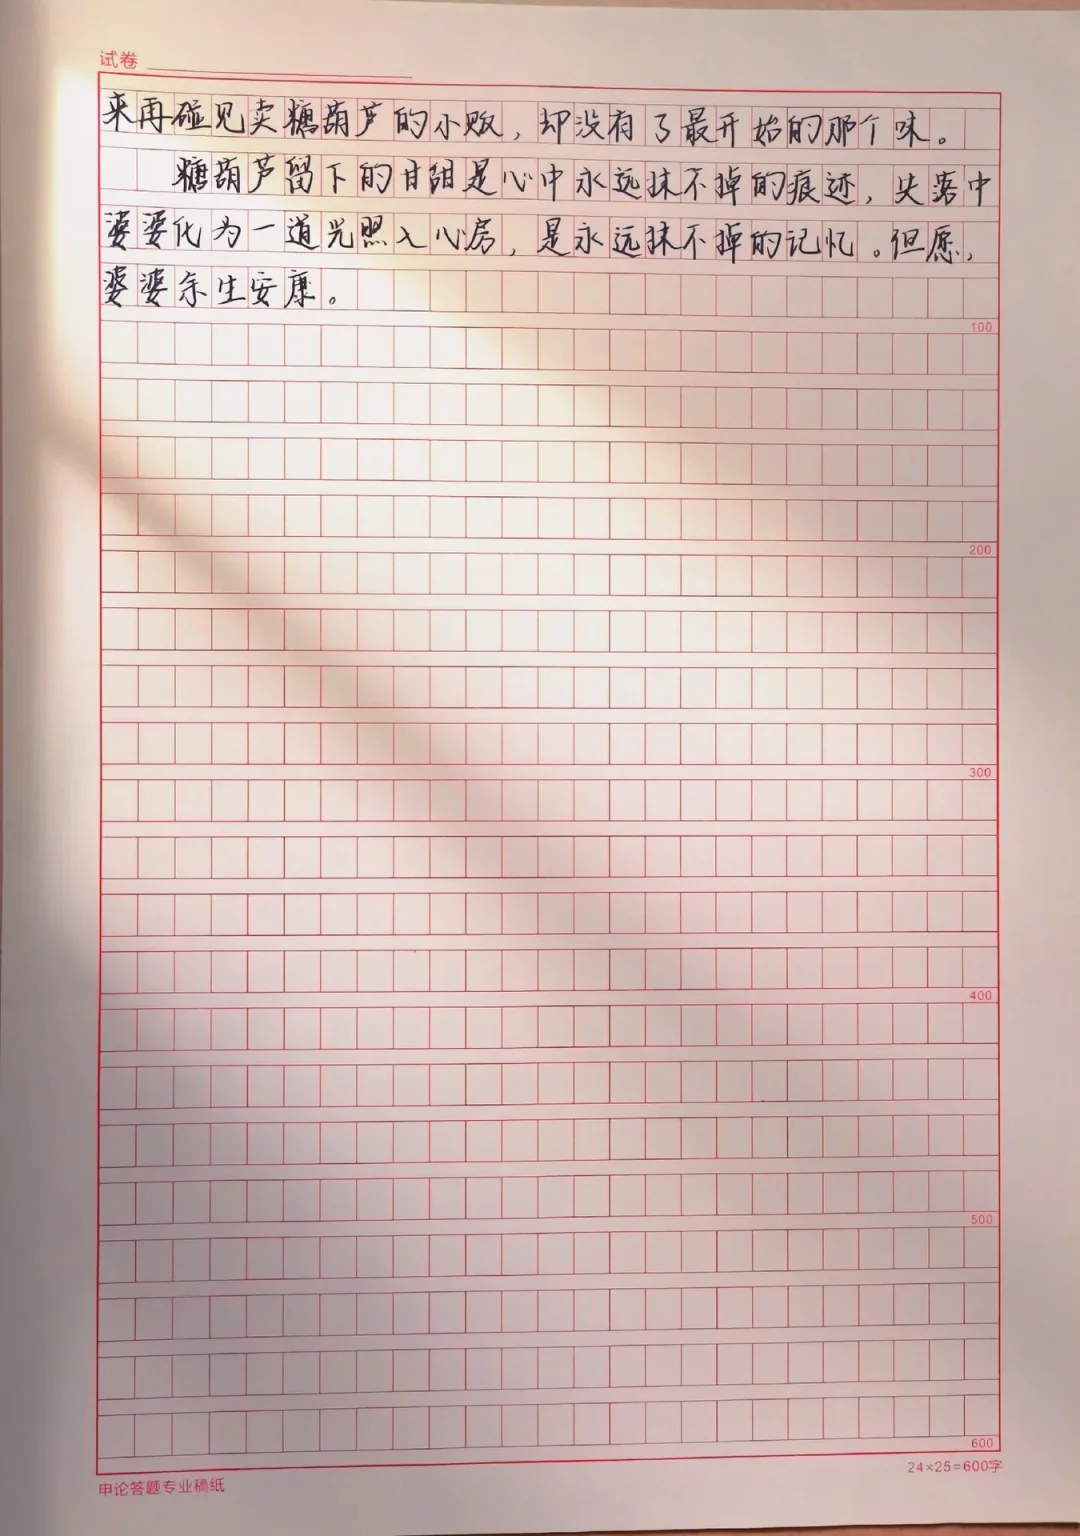 试卷
来再碰见卖糖葫芦的小贩，却没有了最开始的那个味。
糖葫芦留下的甘甜是心中永远抹不掉的痕迹，失落中
婆婆化为一道光照入心房，是永远抹不掉的记忆。但愿，
婆婆余生安康。
100
200
300
400
500
600
24×25=600字
申论答题专业稿纸